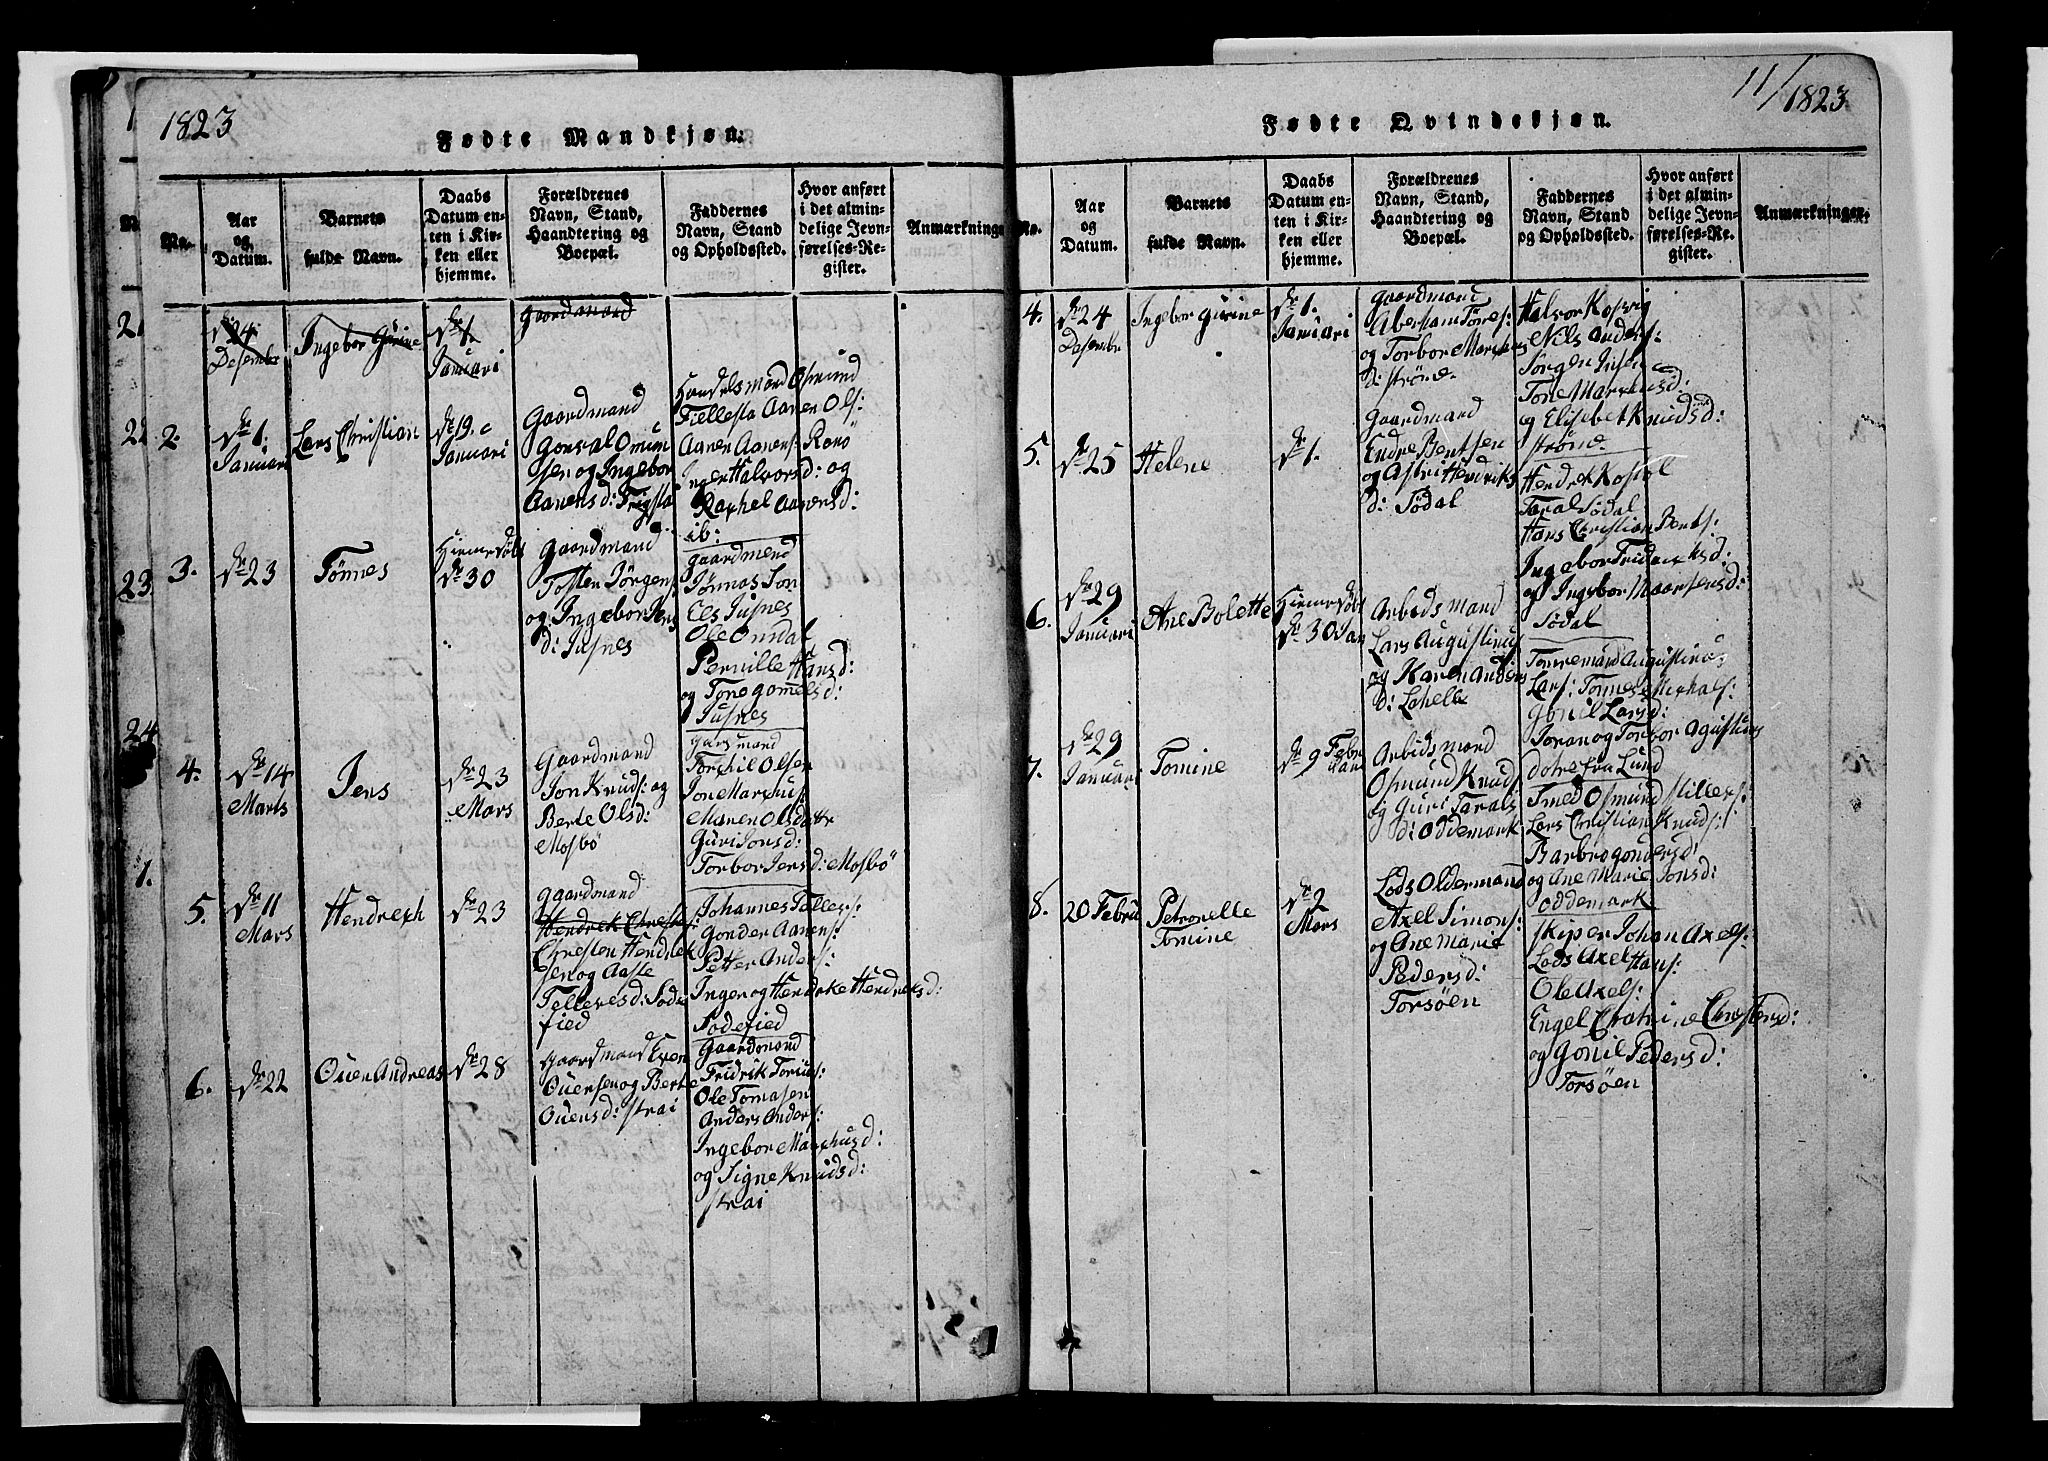 1823
Fødte Mandkjøn.
No.
Aar
og
Datum.
Barnets
fulde Navn.
Daabs
Datum en-
ten i Kir-
ken eller
hjemme.
Forældrenes
Navn, Stand,
Haandtering og
Boepæl.
Faddernes
Navn, Stand
og Opholdssted.
Hvor anført
i det almin-
delige Jevn-
førelses-Re-
gister.
Anmærkninge
21
22
23
24
1.
24
Desembr
Ingebor Gurine
1
Januari
Gaardmand
2.
d: 1.
Januari
Lars Christian
19.
Januari
Gaardmand
Gonval Omun
sen og Ingebor
Aanensd:
Handelsmand Osmund
Fiellesta Aanen Ols:
Aanen Aanens: Ronø
Inger Halvorsd: og
Rachel Aanensd:
ib:
3.
23
Tønnes
Hiemedøbt
30
Gaardmand
Tosten Jørgens
og Ingebor Jens
d: Jusnes
Gaardmend
Tønnas
Els Jusnes
Ole Omdal
Pernille Hansd:
og Tone Gomelsd:
Jusnes
4.
14
Marts
Jens
23
Mars
Gaardmand
Jon Knuds: og
Berte Olsd:
Mosbø
Garsmand
Torchil Olsen
Jon Marchus
Maren Olsdattr
Guri Jonsd:
Torbor Jensd: Mosbø
5.
11
Mars
Hendrech
23
Gaardmand
Hendrek Chrest
Chresten Hendrek
sen og Aaste
Tellevesd: Sodr
fied
Johannes Tallevs:
Gonder Aanens:
Petter Anders:
Inger og Hendrke Hendreksd:
Sodefied
6.
22
Ouen Andreas
28
Gaardmand Even
Ouersen og Berte
Ouensd: Strai
Gaardmand
Fridrik Torius:
Ole Tomasen
Anders Anders:
Ingebor Marchusd:
og Signe Knudsd:
Strai
11/1823
Fødte Qvindekjøn.
No.
Aar
og
Datum.
Barnets
fulde Navn.
Daabs
Datum en-
ten i Kir-
ken eller
hjemme.
Forældrenes
Navn, Stand,
Haandtering og
Boepæl.
Faddernes
Navn, Stand
og Opholdssted.
Hvor anført
i det almin-
delige Jevn-
førelses-Re-
gister.
Anmærkninger.
4.
24
Desembr
Ingebor Gurine
1.
Januari
Gaardmand
Abersam Tønes:
og Torbor Marchus
d: Strøne
Halvor Kosvig
Nils Anders:
Jørgen Jnsen
Tone Marchusd:
og Elisebet Knudsd:
Strøne
5.
25
Helene
1.
Gaardmand
Endre Bentsen
og Astri Hendriks
d: Sødal
Hendrek Kostøl
Taral Sødal
Hans Christian Bents:
Ingebor Fridericksd:
og Ingebor Maartensd:
Sødal
6.
29
Januari
Ane Bolette
Hiemedøbt
30 Jan
Arbedsmand
Lars Augustinus
og Karen Anders
d: Lahelle
Tomremand Augustinus
Lars: Tonnes Michals:
Gonil Larsd:
Joran og Torbor Agustinus
dotre fra Lund
7.
29
Januari
Tomine
9 Febr
uari
Arbidsmand
Osmund Knuds
og Guri Tarals
d: Oddemark
Smed Osmund Stillefs:
Lars Christian Knuds:
Barbro Gondersd:
og Ane Marie Jonsd:
Oddemark
8.
20 Febru
Petronelle
Tomine
2
Mars
Lods Oldermand
Axel Simons:
og Ane Marie
Pedersd:
Torsøen
Skiper Johan Axels:
Lods Axel Hans:
Ole Axels:
Engel Chatrine Chrestensd:
og Gonil Pedersd:
Torsøen